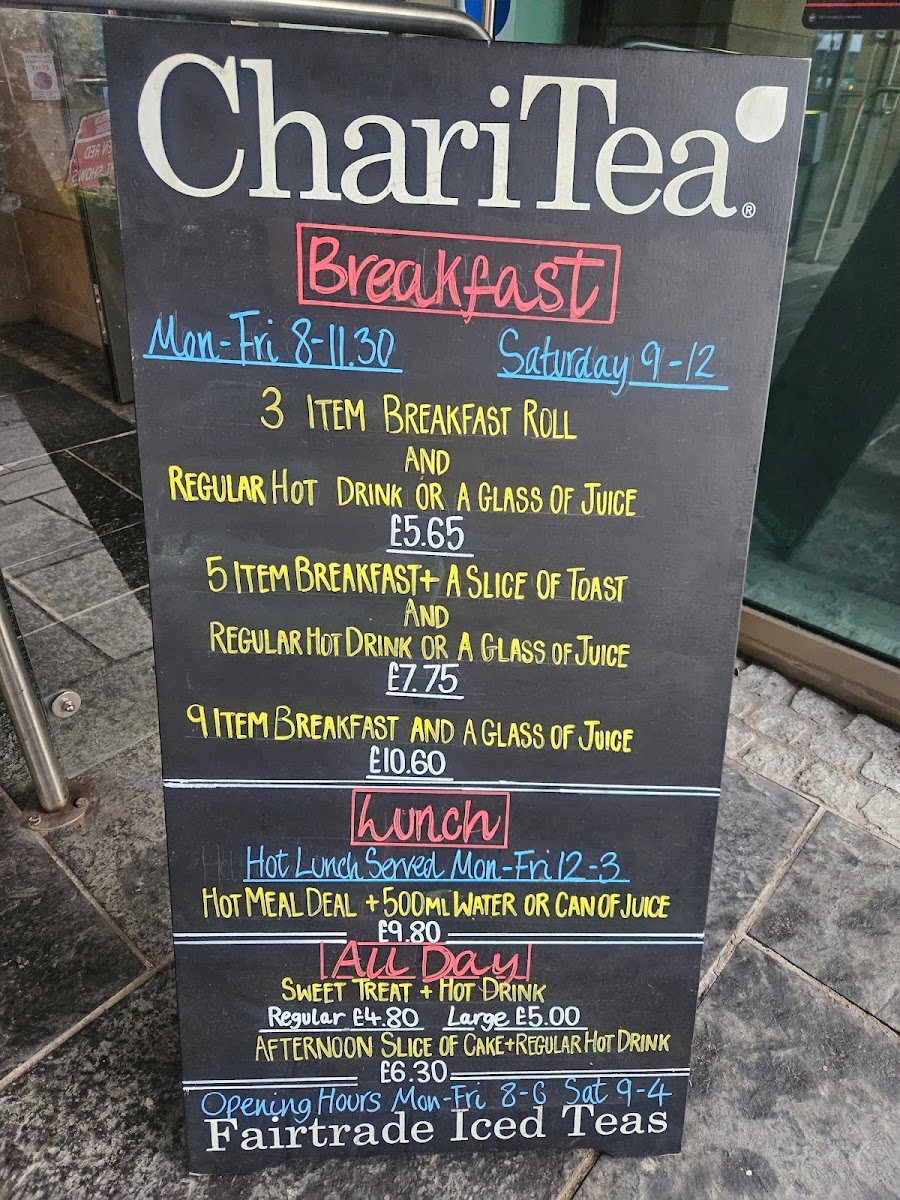 ChariTea®
Breakfast
Mon-Fri 8-11.30 Saturday 9-12
3 ITEM BREAKFAST ROLL
AND
REGULAR HOT DRINK OR A GLASS OF JUICE
£5.65
5 ITEM BREAKFAST + A SLICE OF TOAST
AND
REGULAR HOT DRINK OR A GLASS OF JUICE
£7.75
9 ITEM BREAKFAST AND A GLASS OF JUICE
£10.60
Lunch
Hot Lunch Served Mon-Fri 12-3
HOT MEAL DEAL + 500ML WATER OR CAN OF JUICE
£9.80
All Day
SWEET TREAT + HOT DRINK
Regular £4.80 Large £5.00
AFTERNOON SLICE OF CAKE + REGULAR HOT DRINK
£6.30
Opening Hours Mon-Fri 8-6 Sat 9-4
Fairtrade Iced Teas